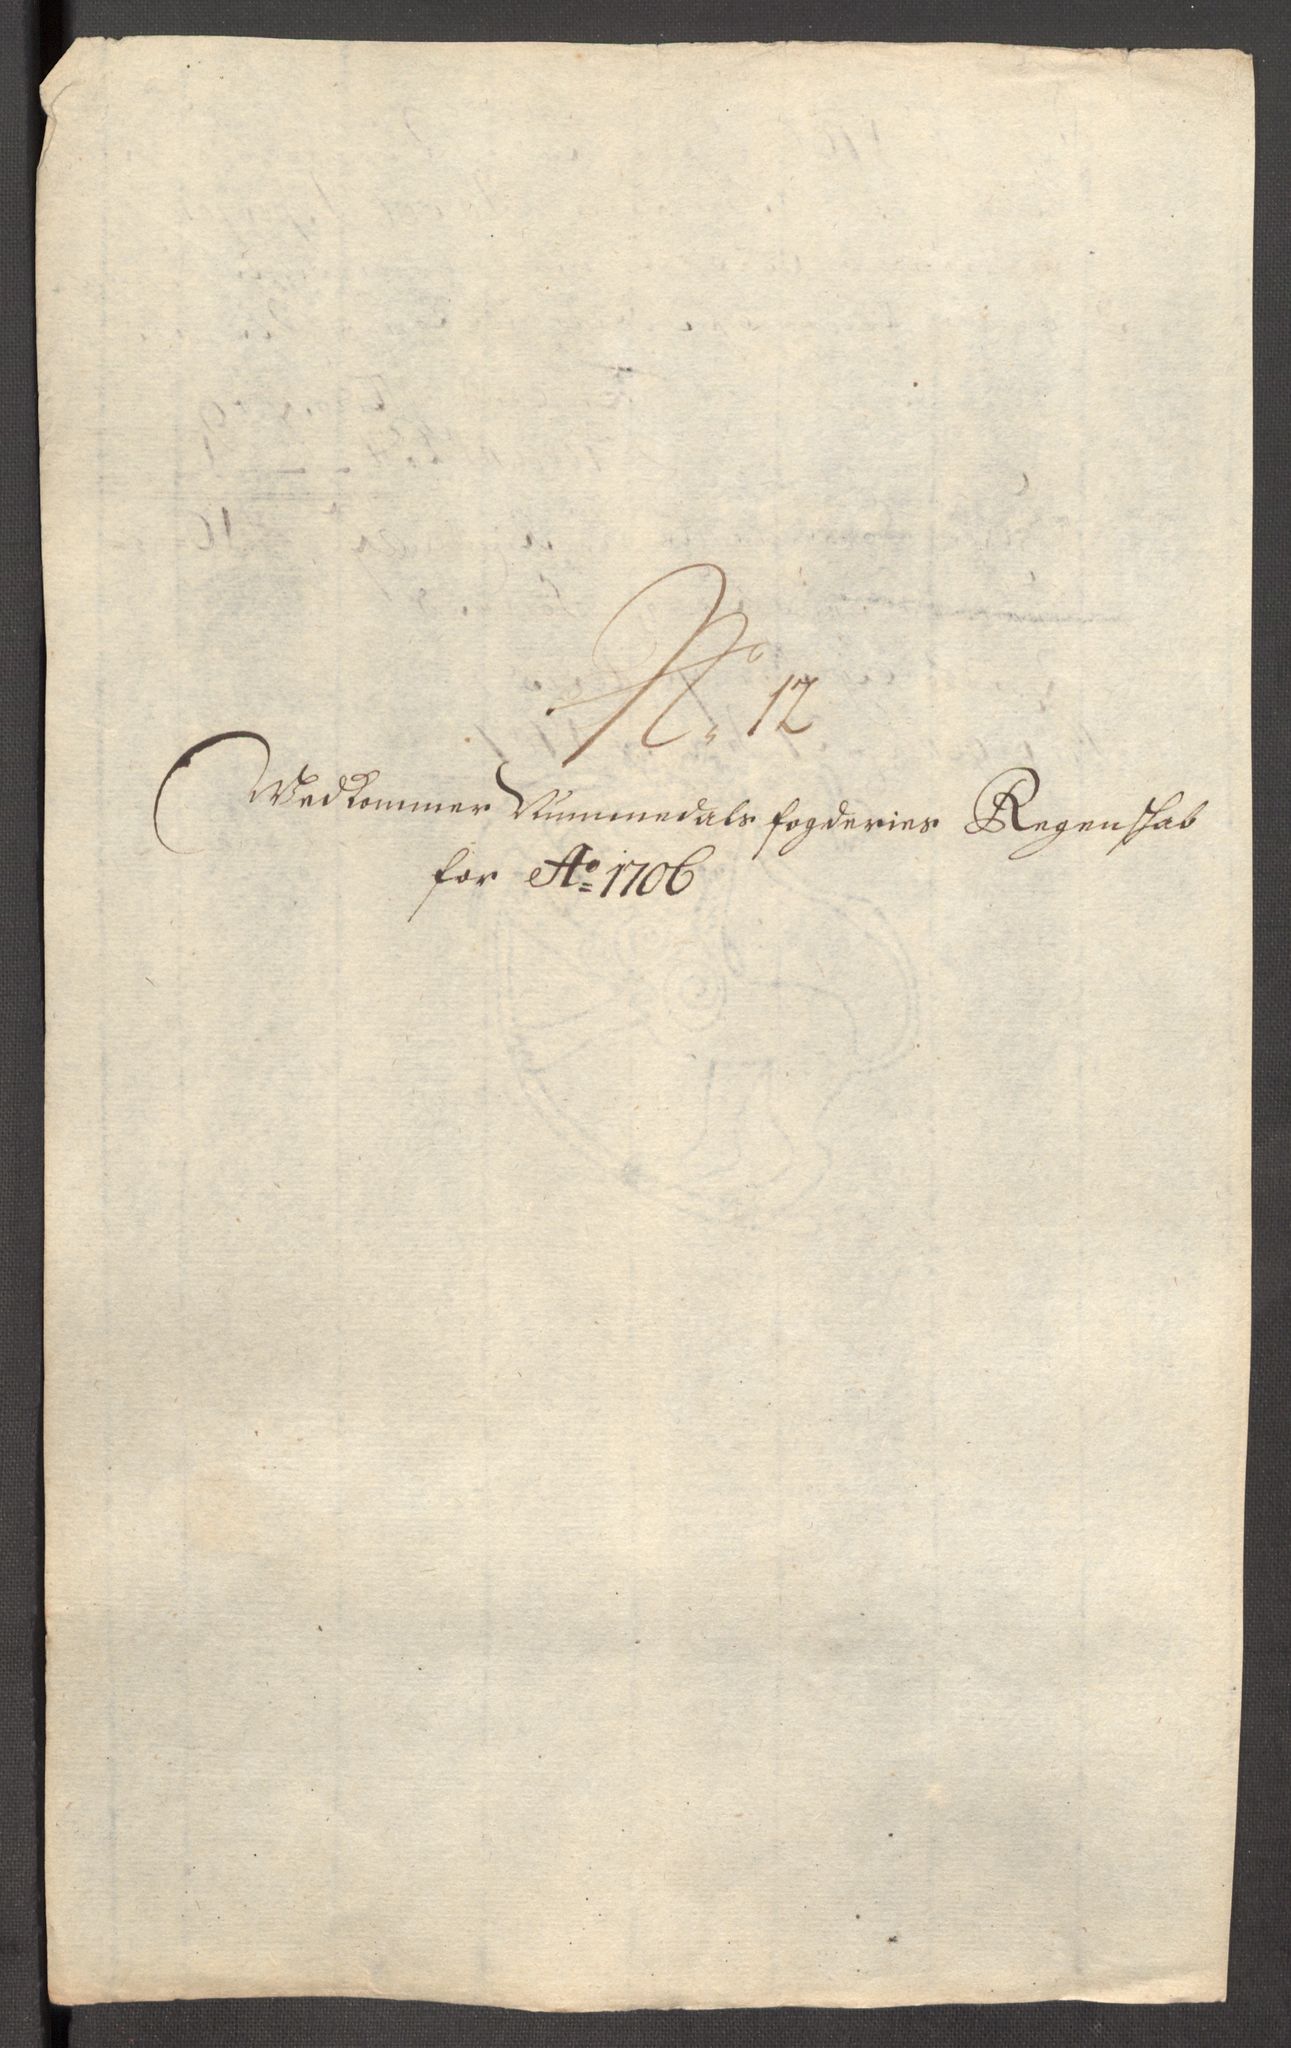 No 12
Vedkommer Nummedals fogderies Regenschab
for Ao 1706